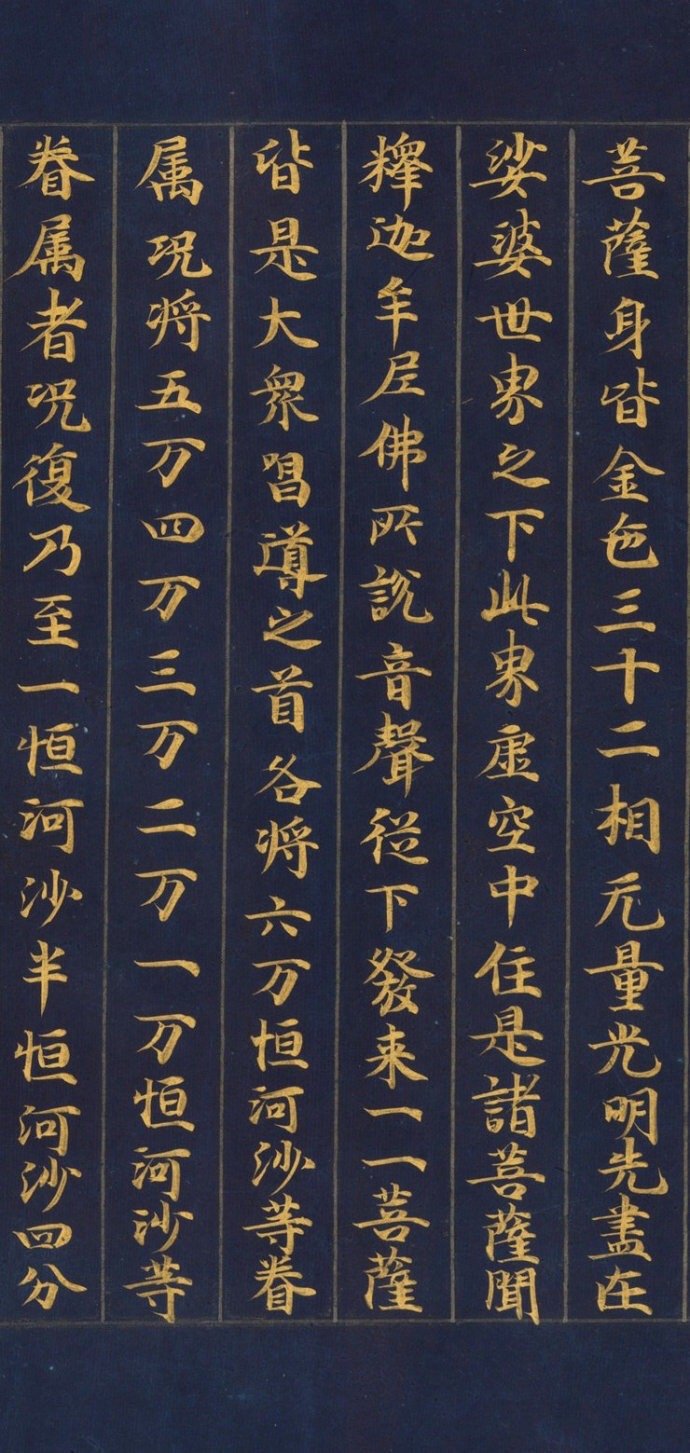 菩薩身皆金色三十二相无量光明先盡在
娑婆世界之下此界虚空中住是諸菩薩聞
釋迦牟尼佛所說音聲從下發来一一菩薩
皆是大衆唱導之首各将六万恒河沙等眷
属况将五万四万三万二万一万恒河沙等
眷属者况復乃至一恒河沙半恒河沙四分